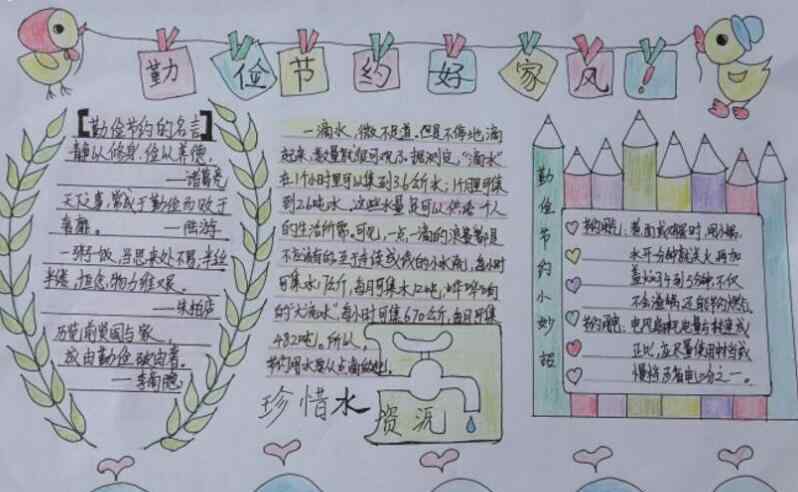 勤俭节约好家风!
【勤俭节约的名言】
静以修身,俭以养德,
——诸葛亮
天下之事,常成于勤俭而败于
奢靡。 ——陆游
一粥一饭,当思来处不易,半丝
半缕,恒念物力维艰。
——朱柏庐
历览前贤国与家,
成由勤俭破由奢。
——李商隐
一滴水,微不足道。但是不停地滴
起来,数量就很可观了。据测定,"滴水"
在1个小时里可以集到3.6公斤水;1个月里可集
到2.6吨水。这些水量足可以供给一个人
的生活所需。可见,一点一滴的浪费都是
不应该有的。至于连续成线的小水流,每小时
可集水17公斤,每月可集水12吨,哗哗响
的"大流水",每小时可集670公斤,每月可集
482吨。所以,
节约用水要从点滴做起。
珍惜水
资源
勤俭节约小妙招
节约煤气:煮面或鸡蛋时,用小锅,
水开一分钟就关火再加
盖焖3到5分钟,不仅
不会溢锅还能节约燃气。
节约用电:电风扇耗电量与转速成
正比,应尽量使用中档或
慢档可省电一分之一。